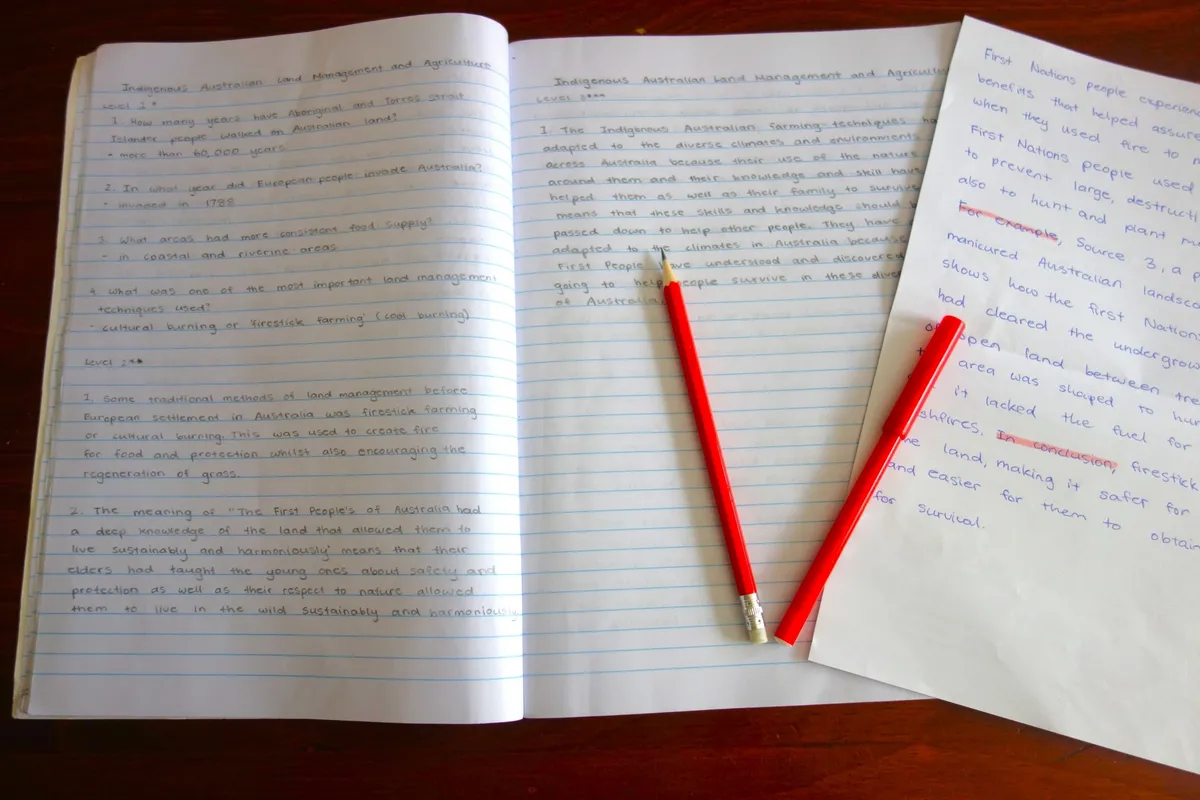 Indigenous Australian Land Management and Agriculture
Level 1*
1. How many years have Aboriginal and Torres Strait
Islander people walked on Australian land?
- more than 60,000 years.
2. In what year did European people invade Australia?
- invaded in 1788
3. What areas had more consistent food supply?
- in coastal and riverine areas
4. What was one of the most important land management
techniques used?
- cultural burning or 'firestick farming' (cool burning)
Level 2**
1. Some traditional methods of land management before
European settlement in Australia was firestick farming
or cultural burning. This was used to create fire
for food and protection whilst also encouraging the
regeneration of grass.
2. The meaning of "The First People's of Australia had
a deep knowledge of the land that allowed them to
live sustainably and harmoniously' means that their
elders had taught the young ones about safety and
protection as well as their respect to nature allowed
them to live in the wild sustainably and harmoniously.
Indigenous Australian Land Management and
Level 3***
1. The Indigenous Australian farming techniques
adapted to the diverse climates and environments
across Australia because their use of the nature
around them and their knowledge and skill
helped them as well as their family to survive
means that these skills and knowledge should
passed down to help other people. They have
adapted to the climates in Australia because
First People have understood and discovered
going to help people survive in these
of Australia
First Nations people
benefits that helped
when they used fire to
First Nations people used
to prevent large,
also to hunt and plant
For example, Source 3, a
manicured Australian
shows how the first
had cleared the
open land between
area was shaped to
it lacked the fuel for
In conclusion,
land, making it safer for
and easier for them to
for survival.